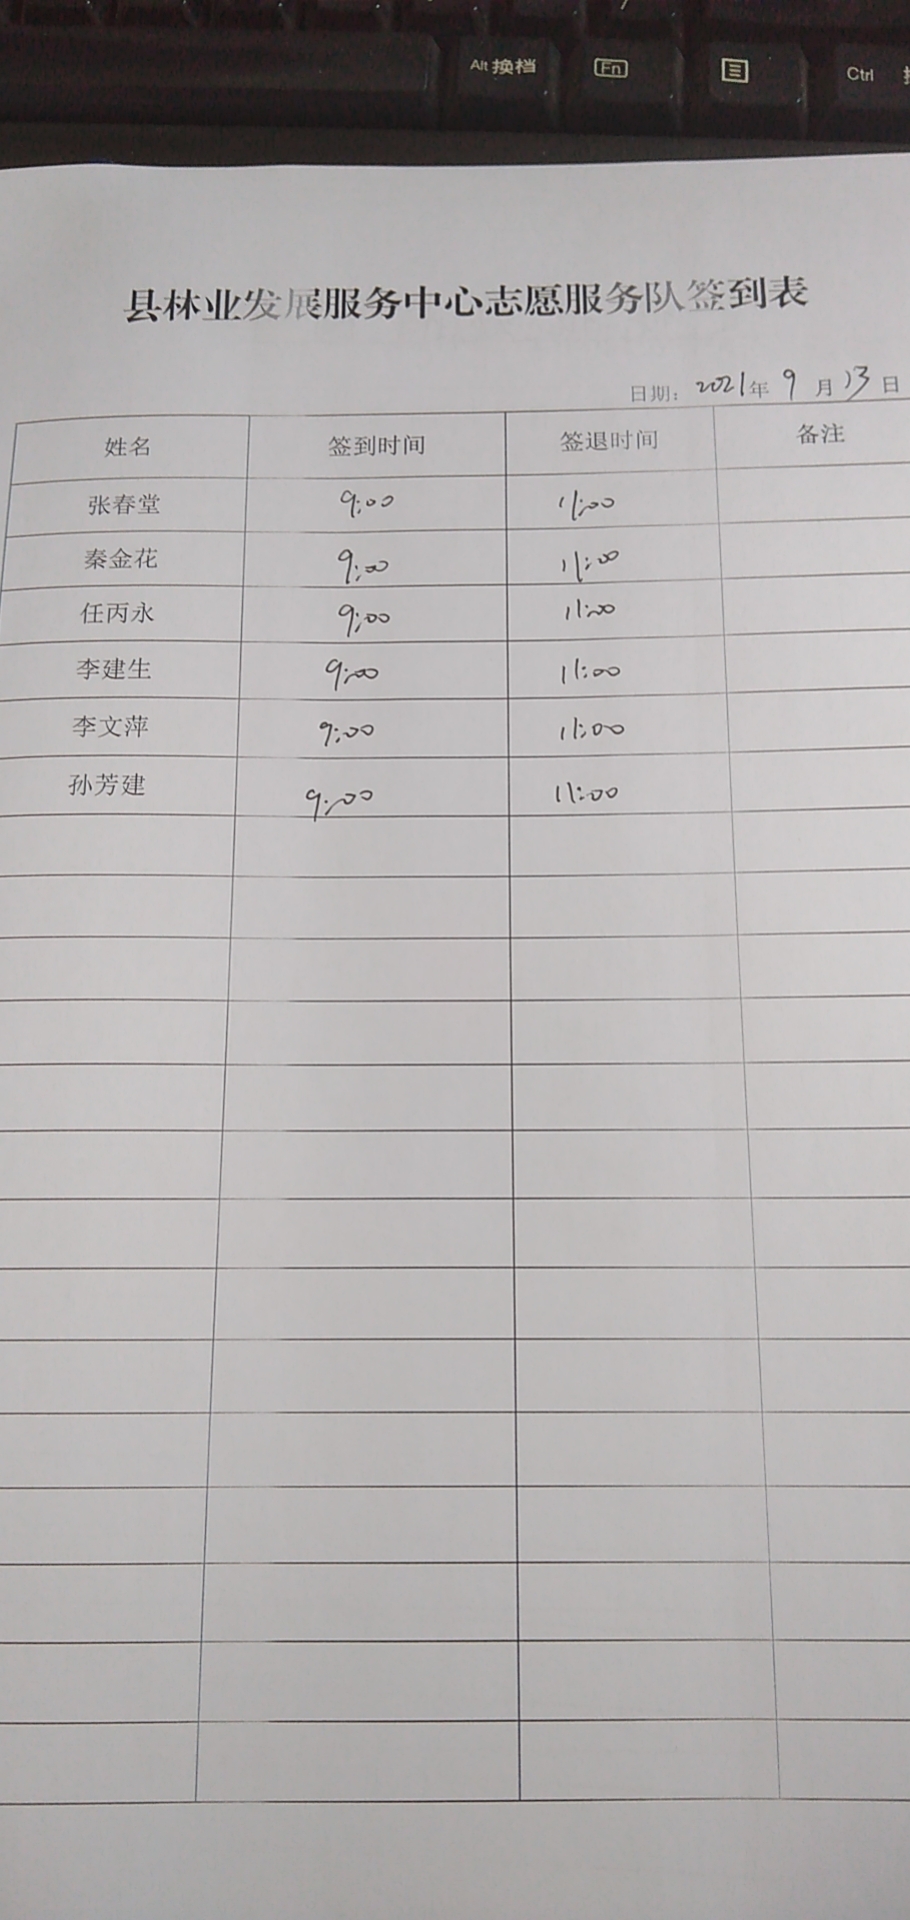 Alt 换档 Fn Ctrl
县林业发展服务中心志愿服务队签到表
日期: 2021年 9 月 13 日
姓名 签到时间 签退时间 备注
张春堂 9:00 11:00
秦金花 9:00 11:00
任丙永 9:00 11:00
李建生 9:00 11:00
李文萍 9:00 11:00
孙芳建 9:00 11:00